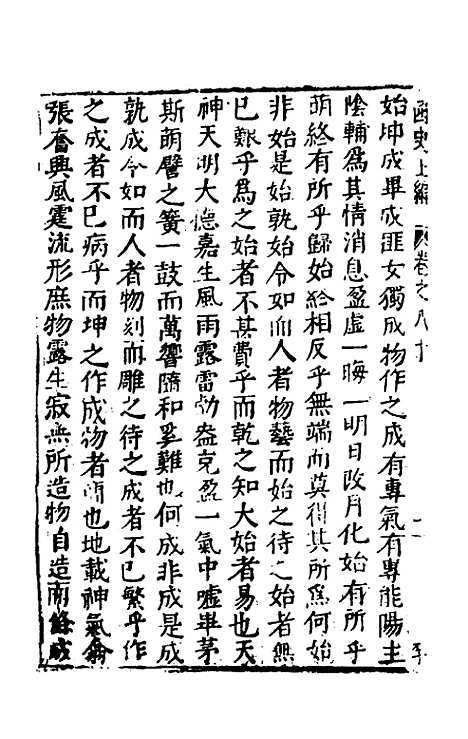 函史上編 卷之八十 二
始坤成畢成匪女獨成物作之成有專氣有專能陽主
陰輔爲其情消息盈虛一晦一明日改月化始有所乎
萌終有所乎歸始終相反乎無端而莫得其所爲何始
非始是始孰始令如而人者物藝而始之待之始者無
已艱乎爲之始者不甚費乎而乾之知大始者易也天
神天明大德嘉生風雨露雷勃盎克盈一氣中噓畢茅
斯萌譬之簧一鼓而萬響隨和奚難也何成非成是成
孰成令如而人者物刻而雕之待之成者不已繁乎作
之成者不已病乎而坤之作成物者簡也地載神氣翕
張奮興風霆流形庶物露生寂無所造物自造